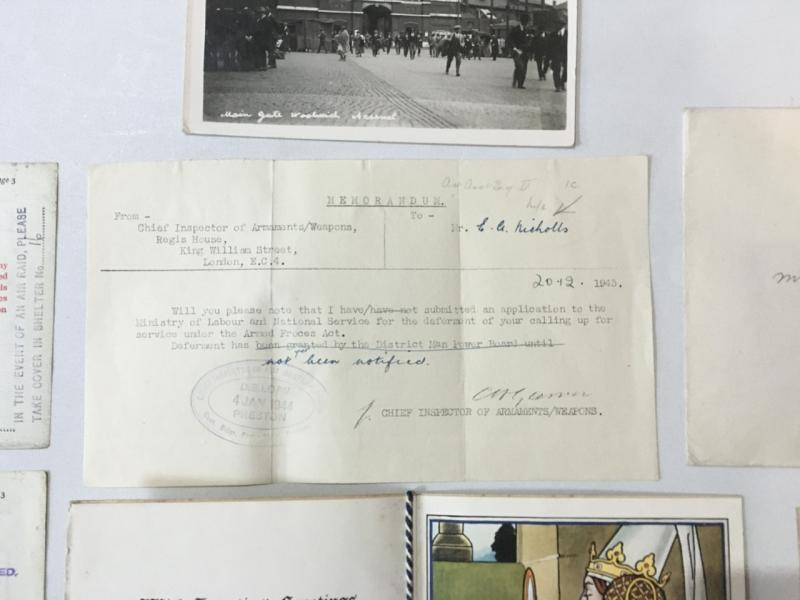 Main Gate Woolwich Arsenal
ge 3
IN THE EVENT OF AN AIR RAID, PLEASE
TAKE COVER IN SHELTER No. 16
MEMORANDUM.
1c
From -
To -
Chief Inspector of Armaments/Weapons,
Regis House,
King William Street,
London, E.C.4.
Mr. E. G. Nicholls
20.12. 1943.
Will you please note that I have/have not submitted an application to the
Ministry of Labour and National Service for the deferment of your calling up for
service under the Armed Froces Act.
Deferment has been granted by the District Man Power Board until
not yet been notified.
4 JAN 1944
PRESTON
CHIEF INSPECTOR OF ARMAMENTS/WEAPONS.
3
ED.
Greetings